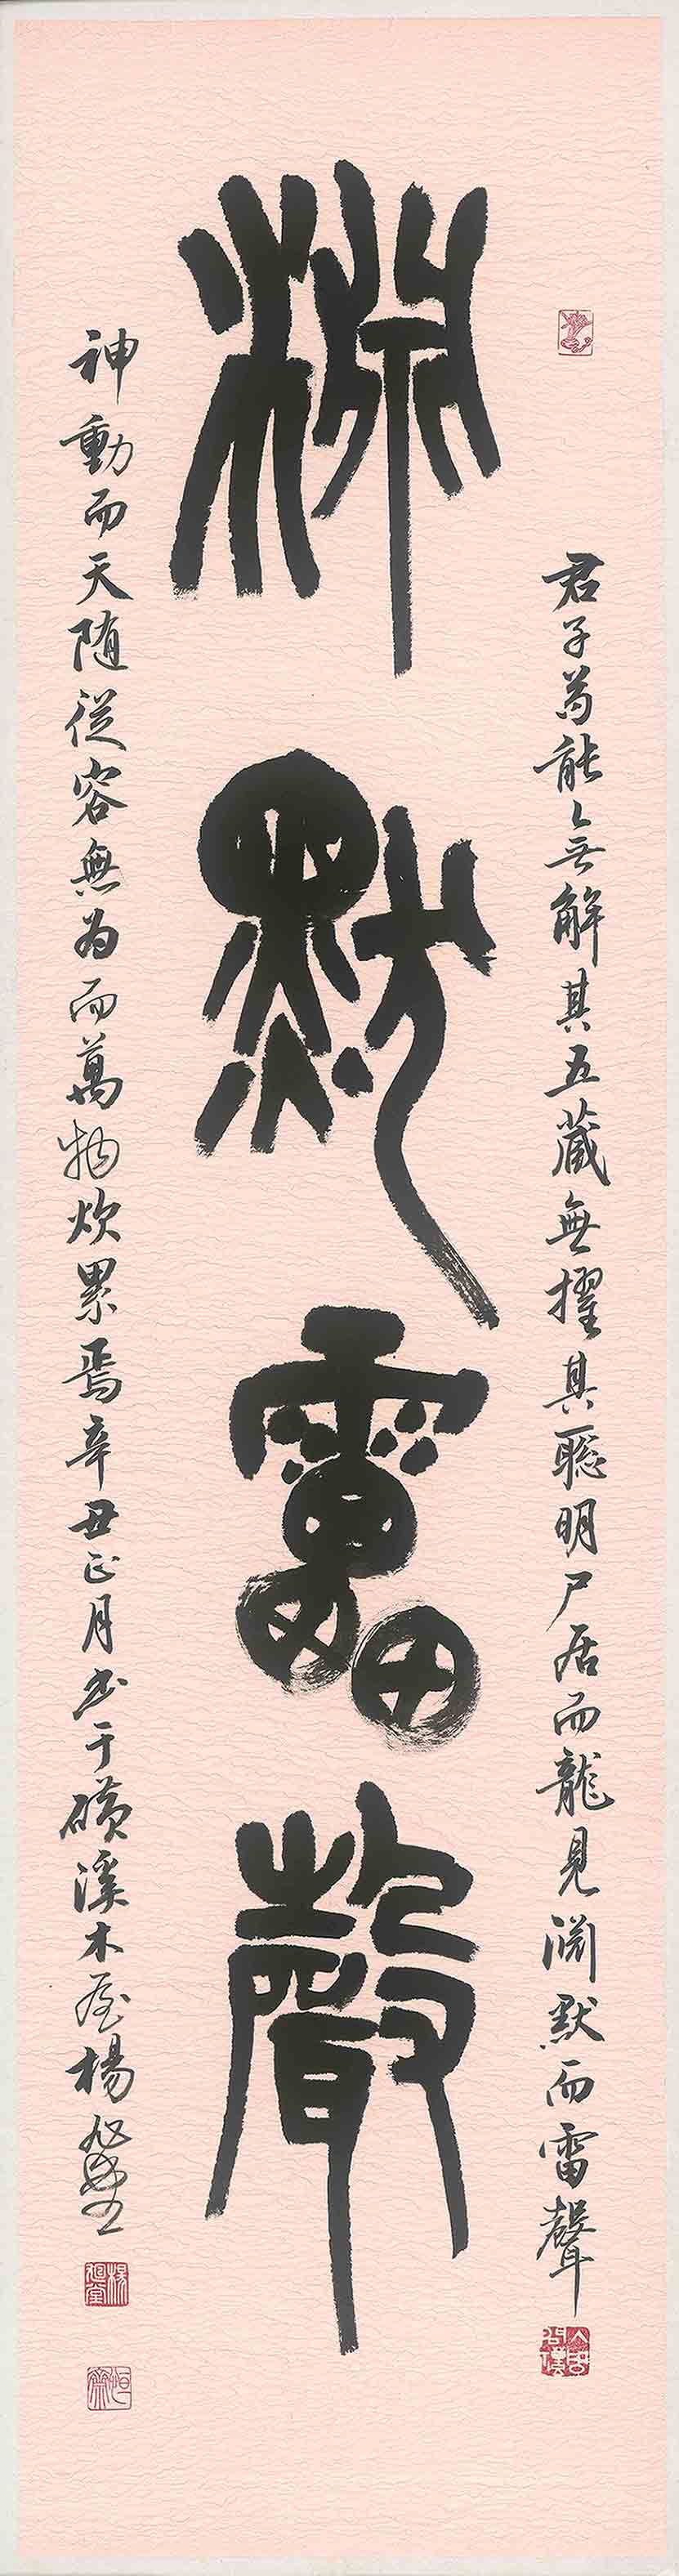 君子苟能無解其五藏無擢其聰明尸居而龍見淵默而雷聲
淵默雷聲
神動而天随從容無為而萬物炊累焉辛丑正月书于磺溪木屋楊旭堂
楊旭堂
恒齋